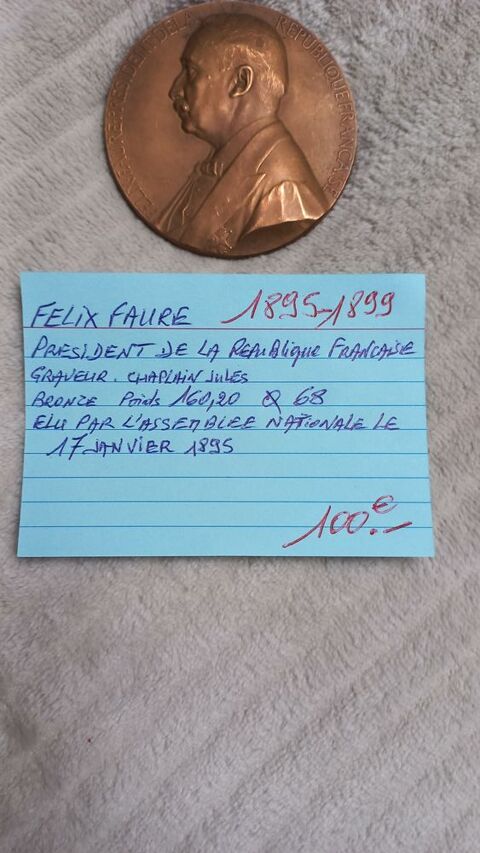 FELIX FAURE PRESIDENT DE LA REPUBLIQUE FRANCAISE
FELIX FAURE 1895-1899
PRESIDENT DE LA REPUBLIQUE FRANCAISE
GRAVEUR. CHAPLAIN JULES
BRONZE Poids 160,20 Ø 68
ELU PAR L'ASSEMBLEE NATIONALE LE
17 JANVIER 1895
100.€-